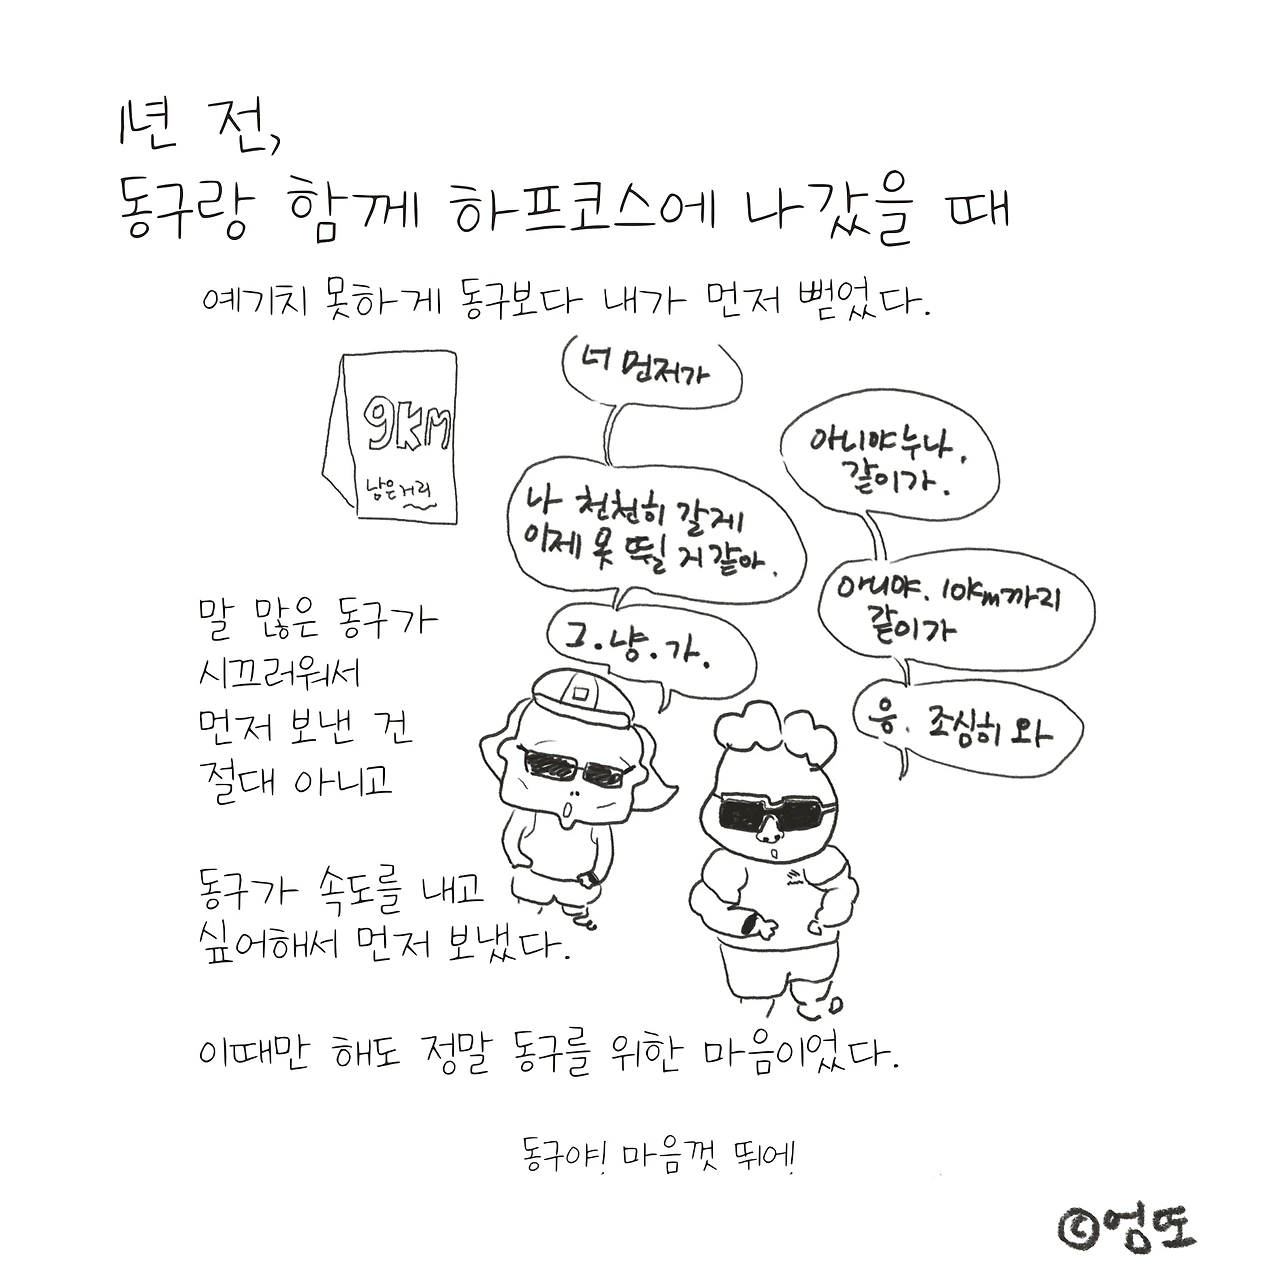 1년 전,
동구랑 함께 하프코스에 나갔을 때
예기치 못하게 동구보다 내가 먼저 뻗었다.
9KM
남은거리
너 먼저가
아니야 누나.
같이가.
나 천천히 갈게
이제 못 뛸 거 같아.
아니야. 10km까지
같이가
그.냥.가.
응. 조심히 와
말 많은 동구가
시끄러워서
먼저 보낸 건
절대 아니고
동구가 속도를 내고
싶어해서 먼저 보냈다.
이때만 해도 정말 동구를 위한 마음이었다.
동구야! 마음껏 뛰에!
©엉또